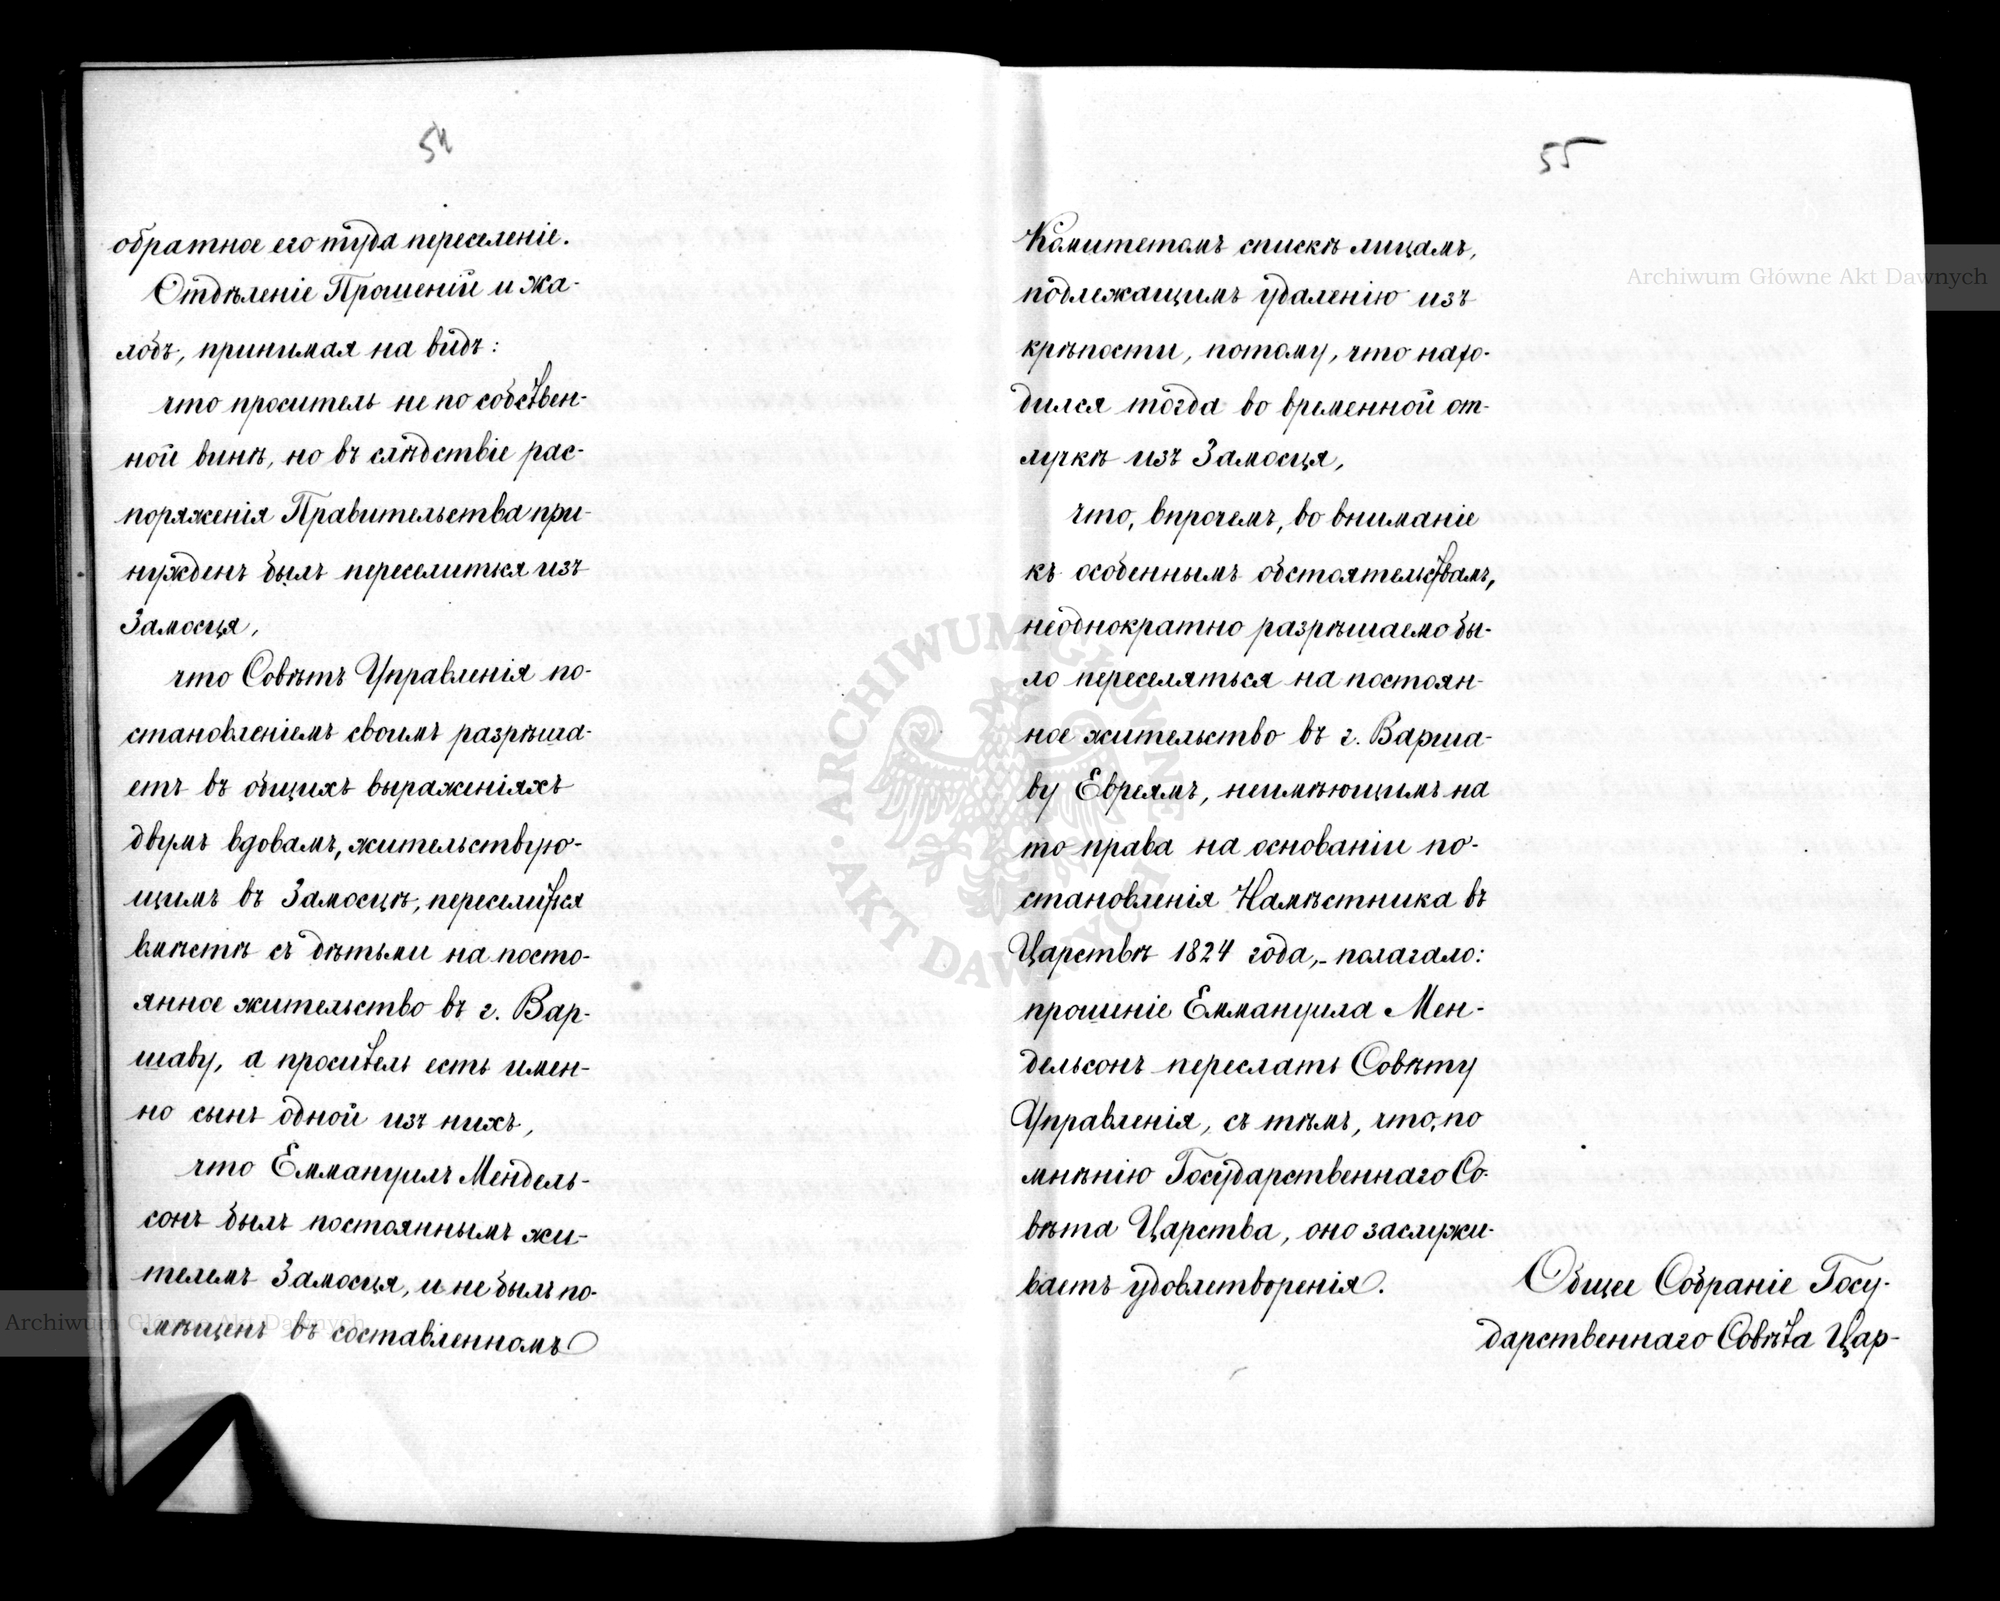 54
обратное его туда переселеніе.
Отдѣленіе Прошеній и жа-
лобъ, принимая на видъ:
что проситель не по собствен-
ной винѣ, но въ слѣдствіе рас-
поряженія Правительства при-
нужденъ былъ переселиться изъ
Замосця,
что Совѣтъ Управленія по-
становленіемъ своимъ разрѣша-
етъ въ общихъ выраженіяхъ
двумъ вдовамъ, жительствую-
щимъ въ Замосцѣ, переселиться
вмѣстѣ съ дѣтьми на посто-
янное жительство въ г. Вар-
шаву, а проситель есть имен-
но сынъ одной изъ нихъ,
что Еммануилъ Мендель-
сонъ былъ постояннымъ жи-
телемъ Замосця, и не былъ по-
мѣщенъ въ составленномъ
55
Комитетомъ спискѣ лицамъ,
подлежащимъ удаленію изъ
крѣпости, потому, что нахо-
дился тогда во временной от-
лучкѣ изъ Замосця,
что, впрочемъ, во вниманіе
къ особеннымъ обстоятельствамъ,
неоднократно разрѣшаемо бы-
ло переселяться на постоян-
ное жительство въ г. Варша-
ву Евреямъ, неимѣющимъ на
то права на основаніи по-
становленія Намѣстника въ
Царствѣ 1824 года,- полагало:
прошеніе Еммануила Мен-
дельсонъ переслать Совѣту
Управленія, съ тѣмъ, что, по
мнѣнію Государственнаго Со-
вѣта Царства, оно заслужи-
ваетъ удовлетворенія.
Общее Собраніе Госу-
дарственнаго Совѣта Цар-
Archiwum Główne Akt Dawnych
Archiwum Główne Akt Dawnych
ARCHIWUM GŁÓWNE AKT DAWNYCH